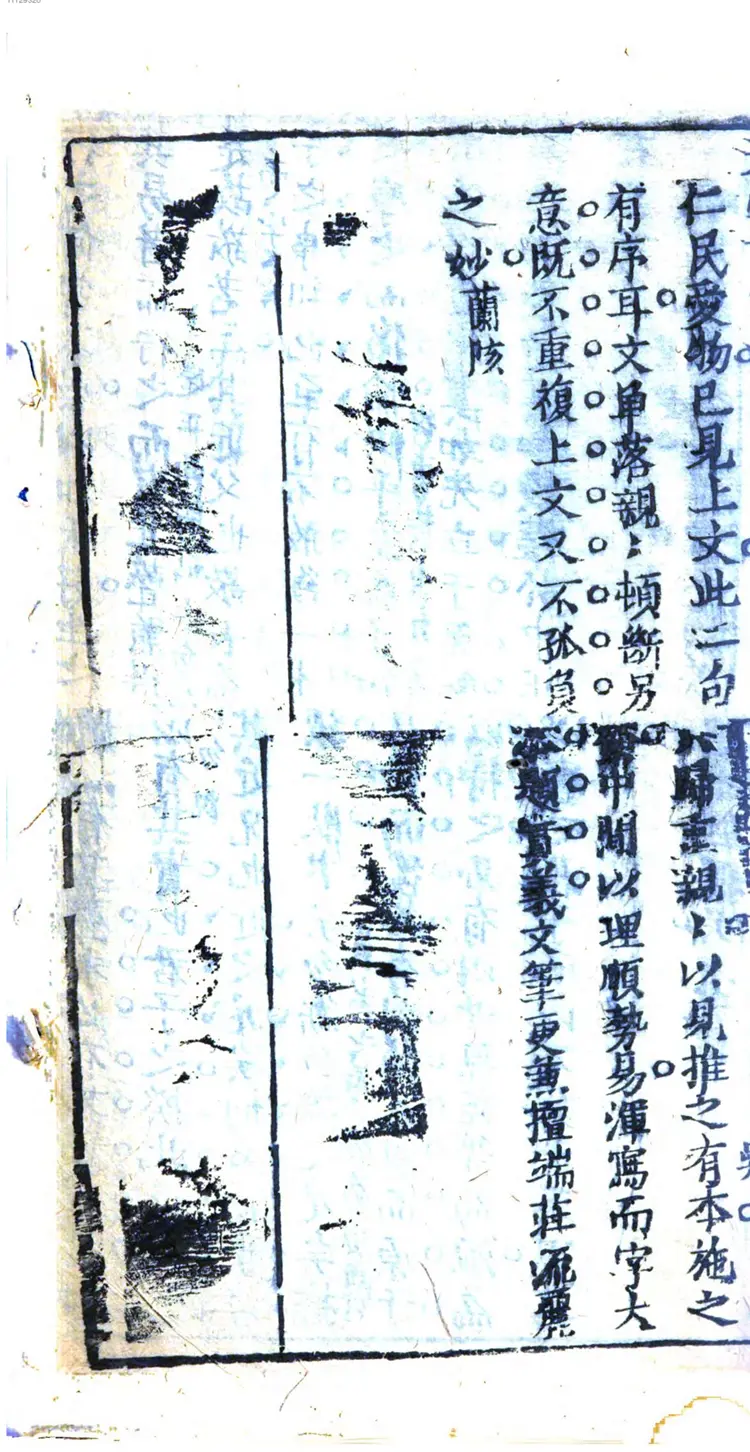 仁民愛物已見上文此二句歸重親〻以見推之有本施之
有序耳文单落親〻頓斷另中間以理順勢易渾寫而字大
意既不重復上文又不孤負題實義文筆更兼擅端莊流麗
之妙 蘭陔